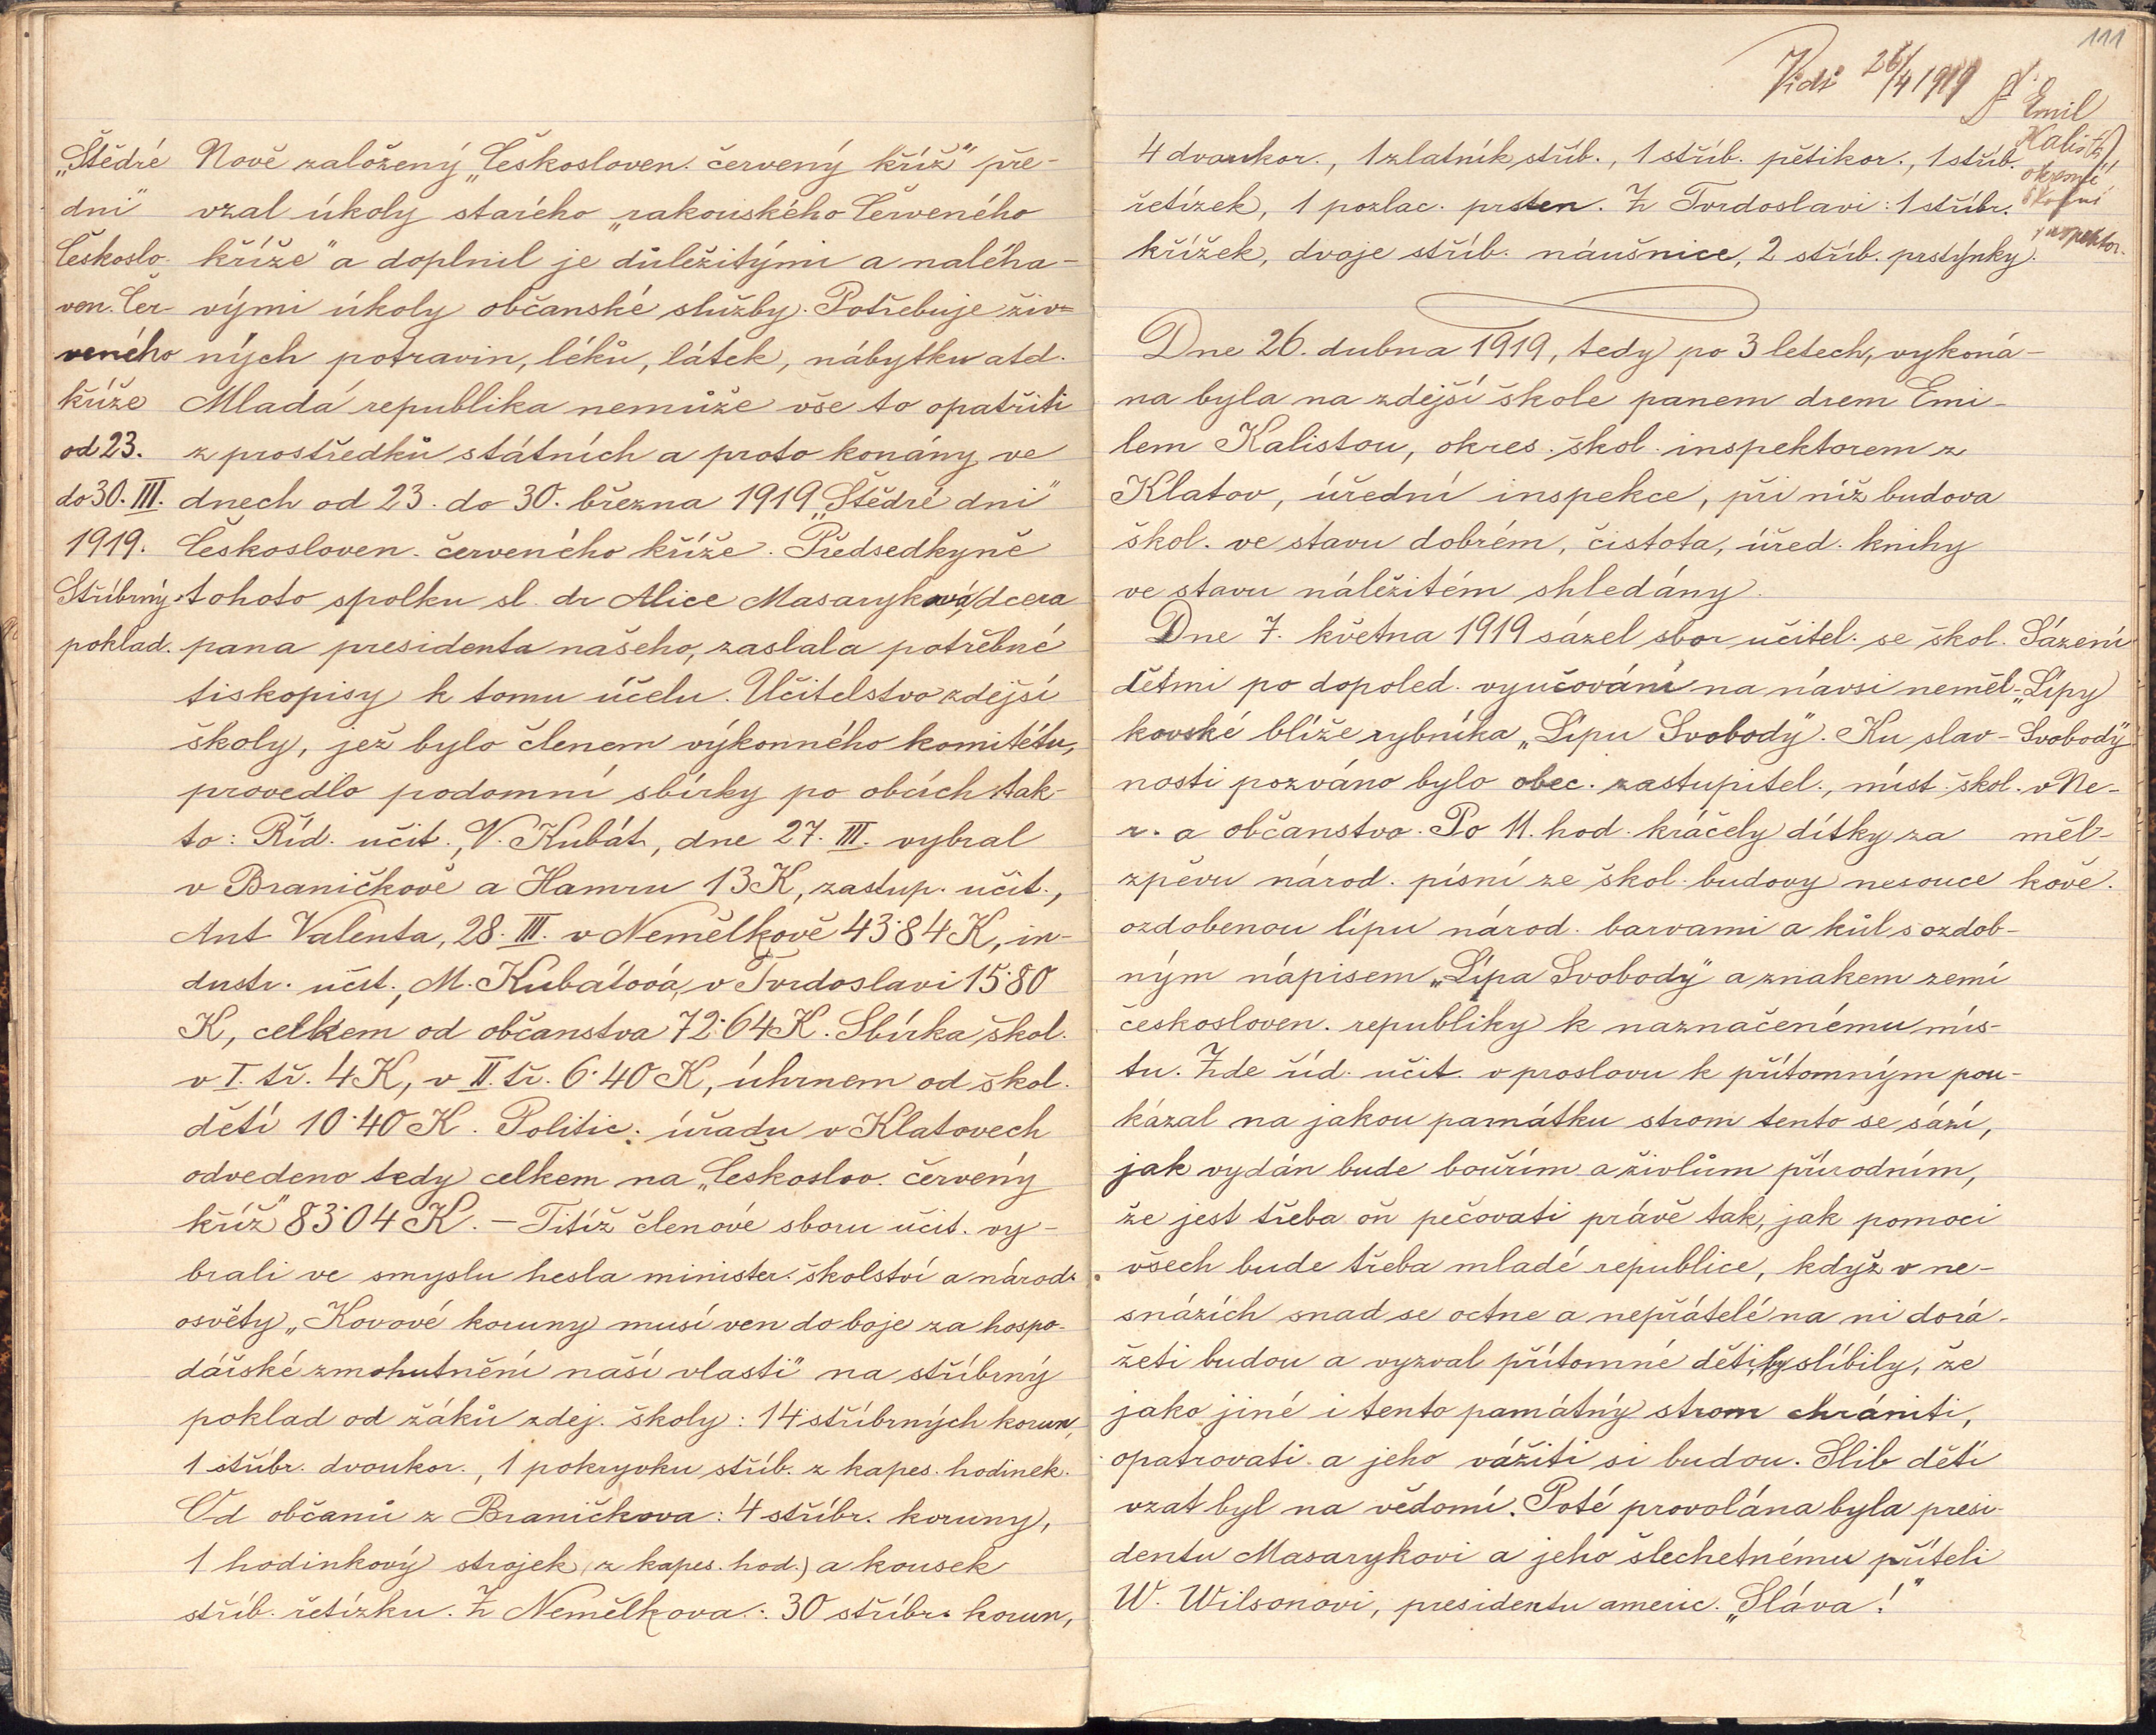 „Štědré
dni"
Českoslo-
ven. Čer-
veného
kříže
od 23.
do 30. III.
1919.
Stříbrný
poklad.
Nově založený „Českosloven. červený kříž" pře-
vzal úkoly starého „rakouského Červeného
kříže" a doplnil je důležitými a naléha-
vými úkoly občanské služby. Potřebuje živ-
ných potravin, léků, látek, nábytku atd.
Mladá republika nemůže vše to opatřiti
z prostředků státních a proto konány ve
dnech od 23. do 30. března 1919 „Štědré dni"
Českosloven. červeného kříže. Předsedkyně
tohoto spolku sl. dr Alice Masaryková, dcera
pana presidenta našeho, zaslala potřebné
tiskopisy k tomu účelu. Učitelstvo zdejší
školy, jež bylo členem výkonného komitétu,
provedlo podomní sbírky po obcích tak-
to: Říd. učit., V. Kubát, dne 27. III. vybral
v Braničkově a Hamru 13 K, zastup. učit.,
Ant. Valenta, 28. III. v Nemělkově 43·84 K, in-
dustr. učit., M. Kubátová, v Tvrdoslavi 15·80
K, celkem od občanstva 72·64 K. Sbírka škol.
v I. tř. 4 K, v II. tř. 6·40 K, úhrnem od škol.
dětí 10·40 K. Politic. úřadu v Klatovech
odvedeno tedy celkem na „Českoslov. červený
kříž" 83·04 K. – Titíž členové sboru učit. vy-
brali ve smyslu hesla minister. školství a národ.
osvěty „Kovové koruny musí ven do boje za hospo-
dářské zmohutnění naší vlasti" na stříbrný
poklad od žáků zdej. školy: 14 stříbrných korun,
1 stříbr. dvoukor., 1 pokryvku stříb. z kapes. hodinek.
Od občanů z Braničkova: 4 stříbr. koruny,
1 hodinkový strojek (z kapes. hod.) a kousek
stříb. řetízku. Z Nemělkova: 30 stříbr. korun,
111
Vidi 26/4 1919
Emil
Kalista,
okresní
školní
inspektor.
4 dvoukor., 1 zlatník stříb., 1 stříb. pětikor., 1 stříb.
řetízek, 1 pozlac. prsten. Z Tvrdoslavi: 1 stříbr.
křížek, dvoje stříb. náušnice, 2 stříb. prstýnky.
Dne 26. dubna 1919, tedy po 3 letech, vykoná-
na byla na zdejší škole panem drem Emi-
lem Kalistou, okres. škol. inspektorem z
Klatov, úřední inspekce, při níž budova
škol. ve stavu dobrém, čistota, úřed. knihy
ve stavu náležitém shledány.
Dne 7. května 1919 sázel sbor učitel. se škol.
dětmi po dopoled. vyučování na návsi neměl-
kovské blíže rybníka „Lípu Svobody". Ku slav-
nosti pozváno bylo obec. zastupitel., míst. škol.
r. a občanstvo. Po 11. hod. kráčely dítky za
zpěvu národ. písní ze škol. budovy nesouce
ozdobenou lípu národ. barvami a kůl s ozdob-
ným nápisem „Lípa Svobody" a znakem zemí
českosloven. republiky k naznačenému mís-
tu. Zde říd. učit. v proslovu k přítomným pou-
kázal na jakou památku strom tento se sází,
jak vydán bude bouřím a živlům přírodním,
že jest třeba oň pečovati právě tak, jak pomoci
všech bude třeba mladé republice, když v ne-
snázích snad se octne a nepřátelé na ni dorá-
žeti budou a vyzval přítomné děti, by slíbily, že
jako jiné i tento památný strom chrániti,
opatrovati a jeho vážiti si budou. Slib dětí
vzat byl na vědomí. Poté provolána byla presi-
dentu Masarykovi a jeho šlechetnému příteli
W. Wilsonovi, presidentu americ. „Sláva!"
Sázení
„Lípy
Svobody"
v Ne-
měl-
kově.